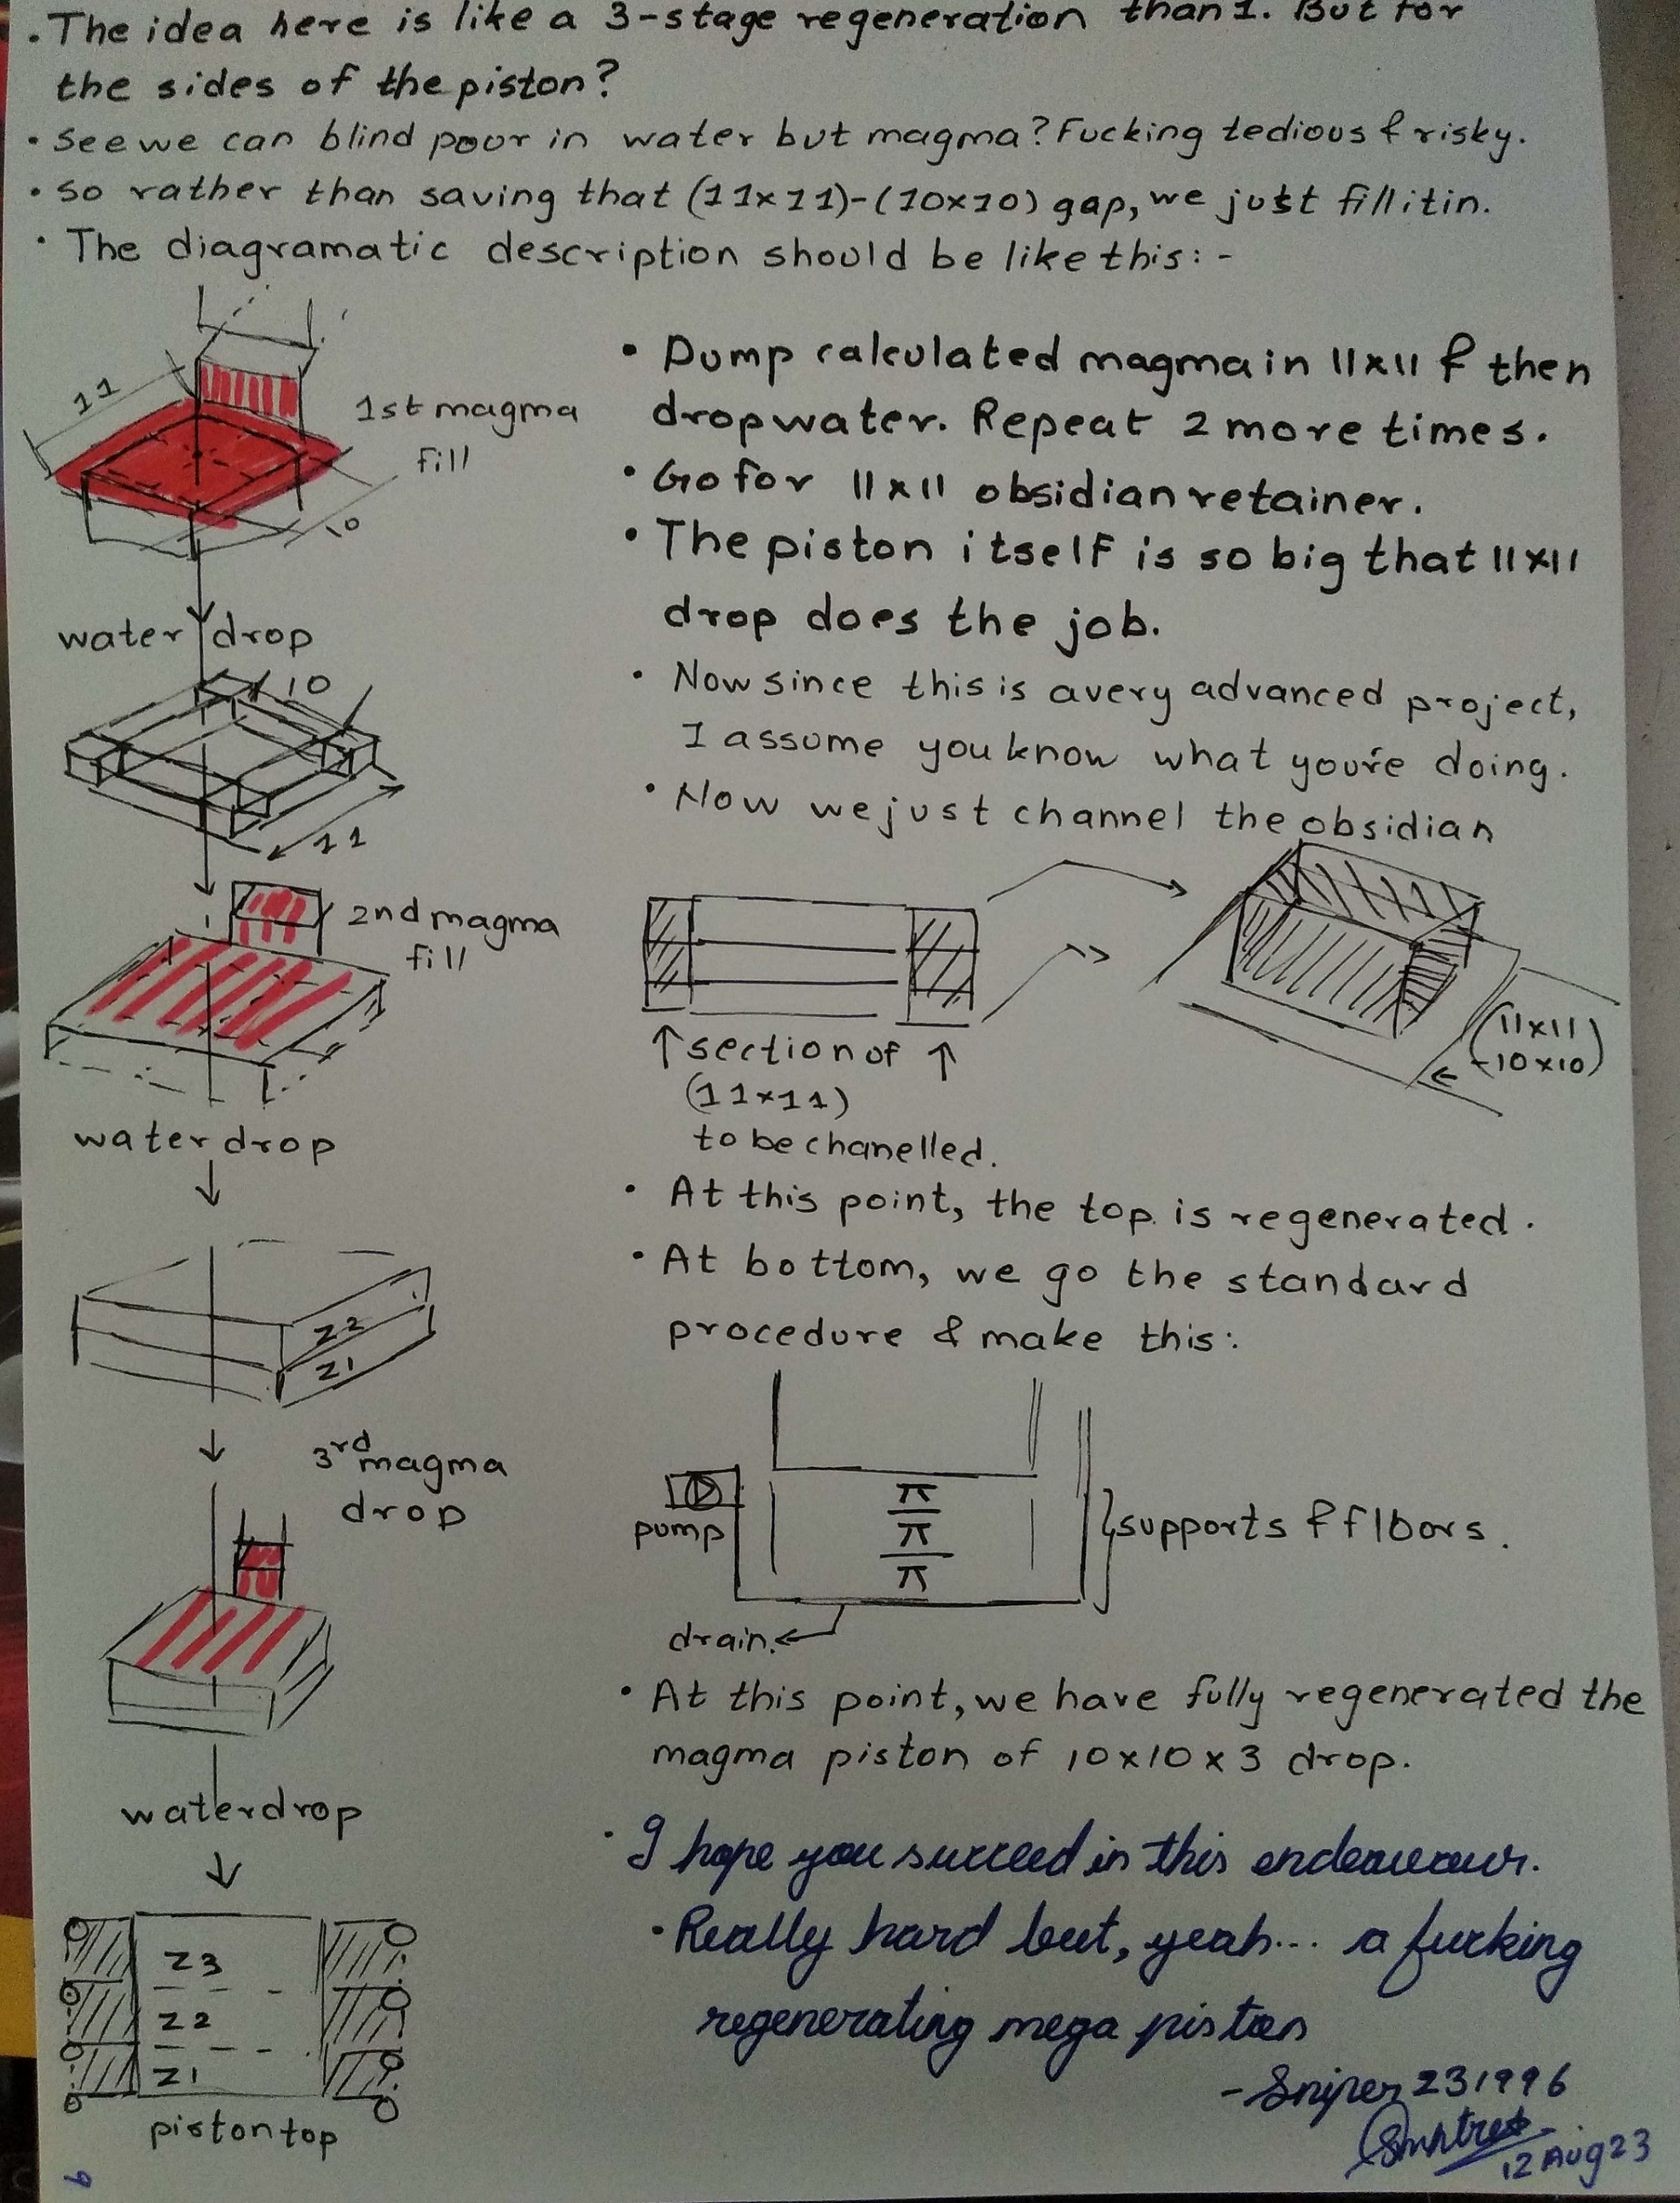 . The idea here is like a 3-stage regeneration than 1. But for
the sides of the piston?
• See we can blind pour in water but magma? Fucking tedious & risky.
• so rather than saving that (11x11)-(10x10) gap, we just fill it in.
• The diagramatic description should be like this: -
11
1st magma
fill
10
water drop
10
11
2nd magma
fill
water drop
Z2
Z1
3rd magma
drop
waterdrop
Z3
Z2
Z1
piston top
6
• Dump calculated magma in 11x11 & then
drop water. Repeat 2 more times.
• Go for 11x11 obsidian retainer.
• The piston itself is so big that 11x11
drop does the job.
• Now since this is a very advanced project,
I assume you know what you're doing.
• Now we just channel the obsidian
↑ section of ↑
(11x11)
to be chanelled.
(11x11
-10x10)
• At this point, the top is regenerated.
• At bottom, we go the standard
procedure & make this:
pump
supports & floors.
drain.
• At this point, we have fully regenerated the
magma piston of 10x10x3 drop.
• I hope you succeed in this endeavour.
• Really hard but, yeah... a fucking
regenerating mega piston
- Sniper231996
12 Aug 23